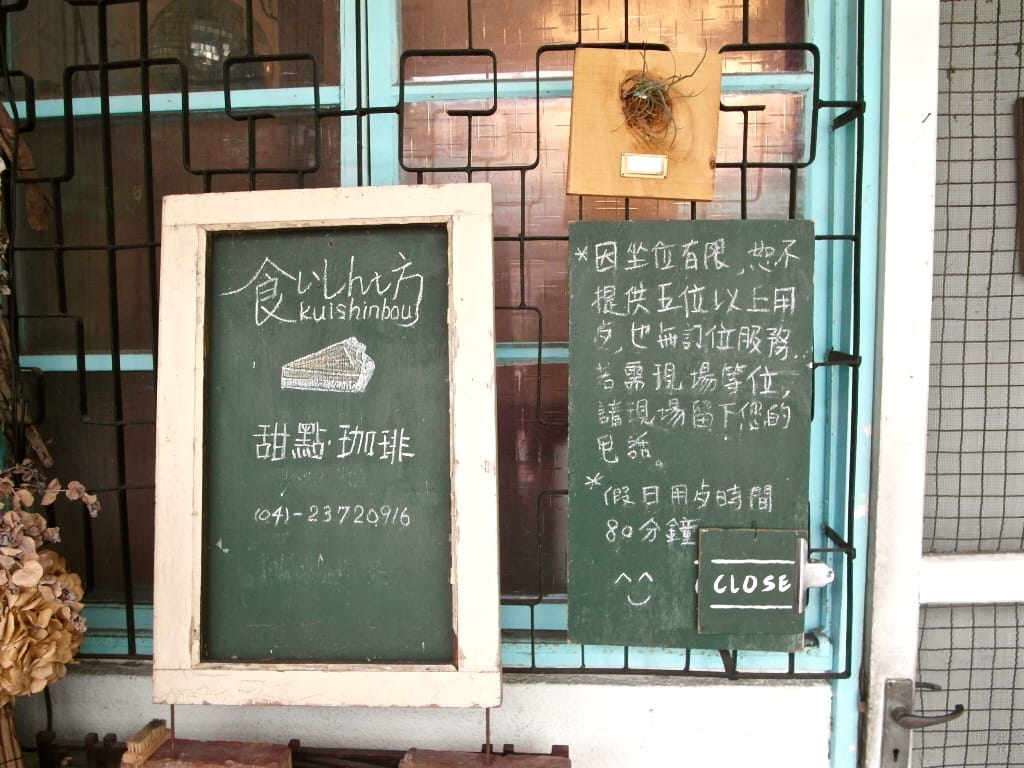 食いしん坊
kuishinbou
甜點·珈琲
(04)-23720916
*因坐位有限,恕不
提供五位以上用
歺,也無訂位服務,
若需現場等位,
請現場留下您的
电話。
*假日用歺時間
80分鐘
CLOSE